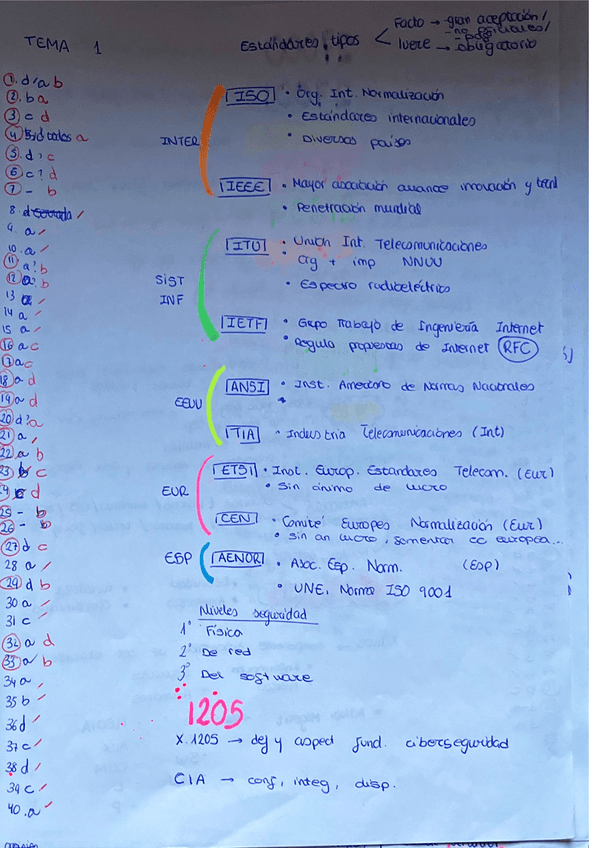 TEMA 1
Estándares, tipos
Facto → gran aceptación /
- no oficiales /
Iuere → obligatorio
1. d/a b
2. b a
3 c d
4 a
5. d, c
6 c? d
7 - b
8. d
9. a
10. a
11 a? b
12 a? b
13 a
14 a
15 a
16 a c
17 a c
18 a d
19 a d
20 d? a
21 a
22 a b
23 b c
24 c d
25 - b
26 - b
27 d c
28 a
29 d b
30 a
31 c
32 a d
33 a b
34 a
35 b
36 d
37 c
38 d
39 c
40. a
INTER
ISO • Org. Int. Normalización
• Estándares internacionales
• Diversos países
IEEE • Mayor asociación avance innovación y
• Penetración mundial
SIST
INF
ITU • Unión Int. Telecomunicaciones
• Org + imp NNUU
• Espectro radioeléctrico
IETF • Grupo Trabajo de Ingeniería Internet
• Regula propuestas de Internet RFC
EEUU
ANSI • Inst. Americano de Normas Nacionales
TIA • Industria Telecomunicaciones (Int)
EUR
ETSI • Inst. Europ. Estándares Telecom. (Eur)
• Sin ánimo de lucro
CEN • Comité Europeo Normalización (Eur)
• sin an lucro, fomentar ec europea...
ESP
AENOR • Asoc. Esp. Norm. (Esp)
• UNE, Norma ISO 9001
Niveles seguridad
1º Física
2º De red
3º Del software
1205
X.1205 → def y aspect fund. ciberseguridad
CIA → conf, integ, disp.